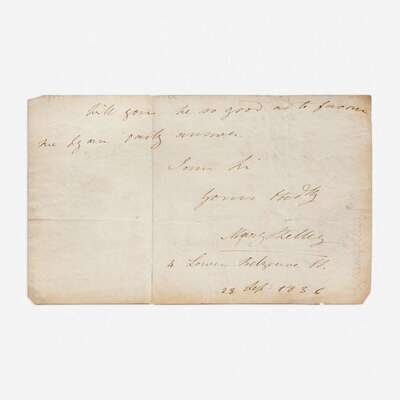 Will you be so good as to favour
me by an early answer
I am Sir
Yours Obdly
Mary Shelley
4 Lower Belgrave St.
23 Sep. 1836